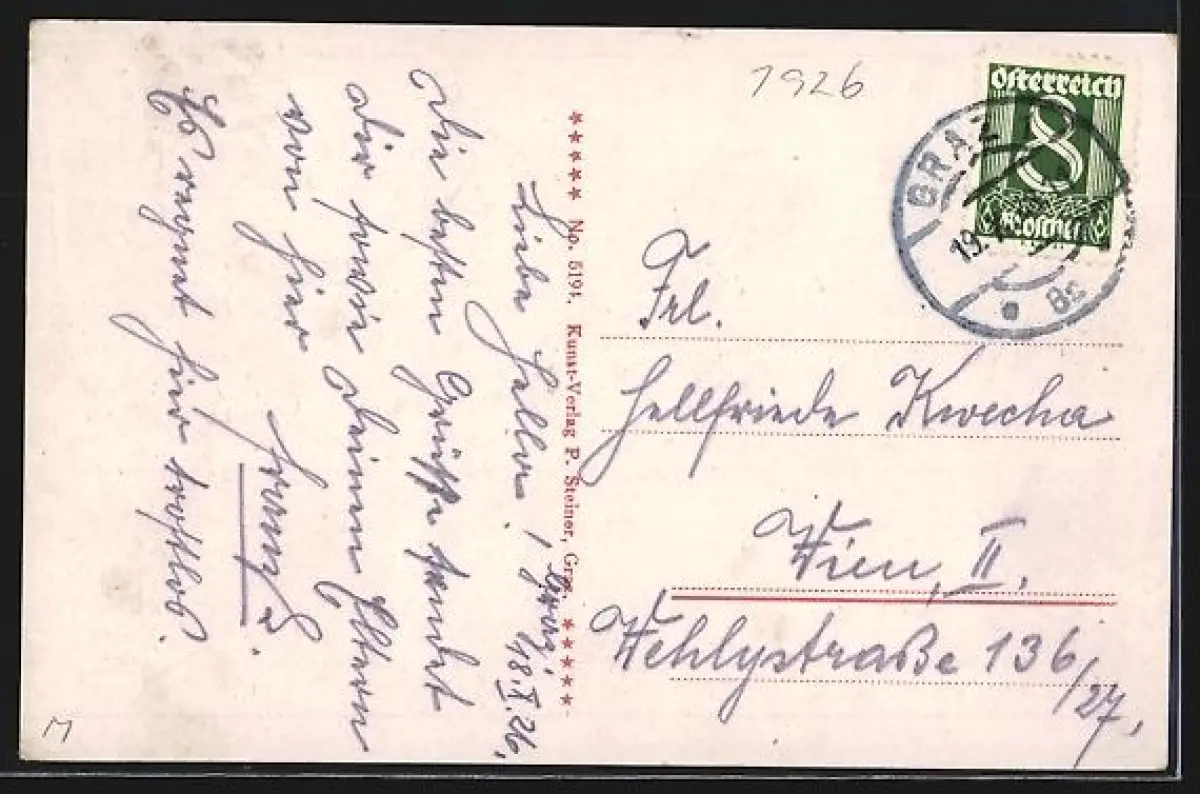 1926
Österreich
8
Groschen
GRAZ
19.
8c
Frl.
Hellfriede Kwecha
Wien, II.
Wehlystraße 136/27,
***** No. 5191. Kunst-Verlag P. Steiner, Graz. *****
Graz, 18.X.26,
Liebe Hella!
Die besten Grüße sendet
dir sowie deinen Eltern
von hier
Franz.
Es regnet hier trostlos.
M